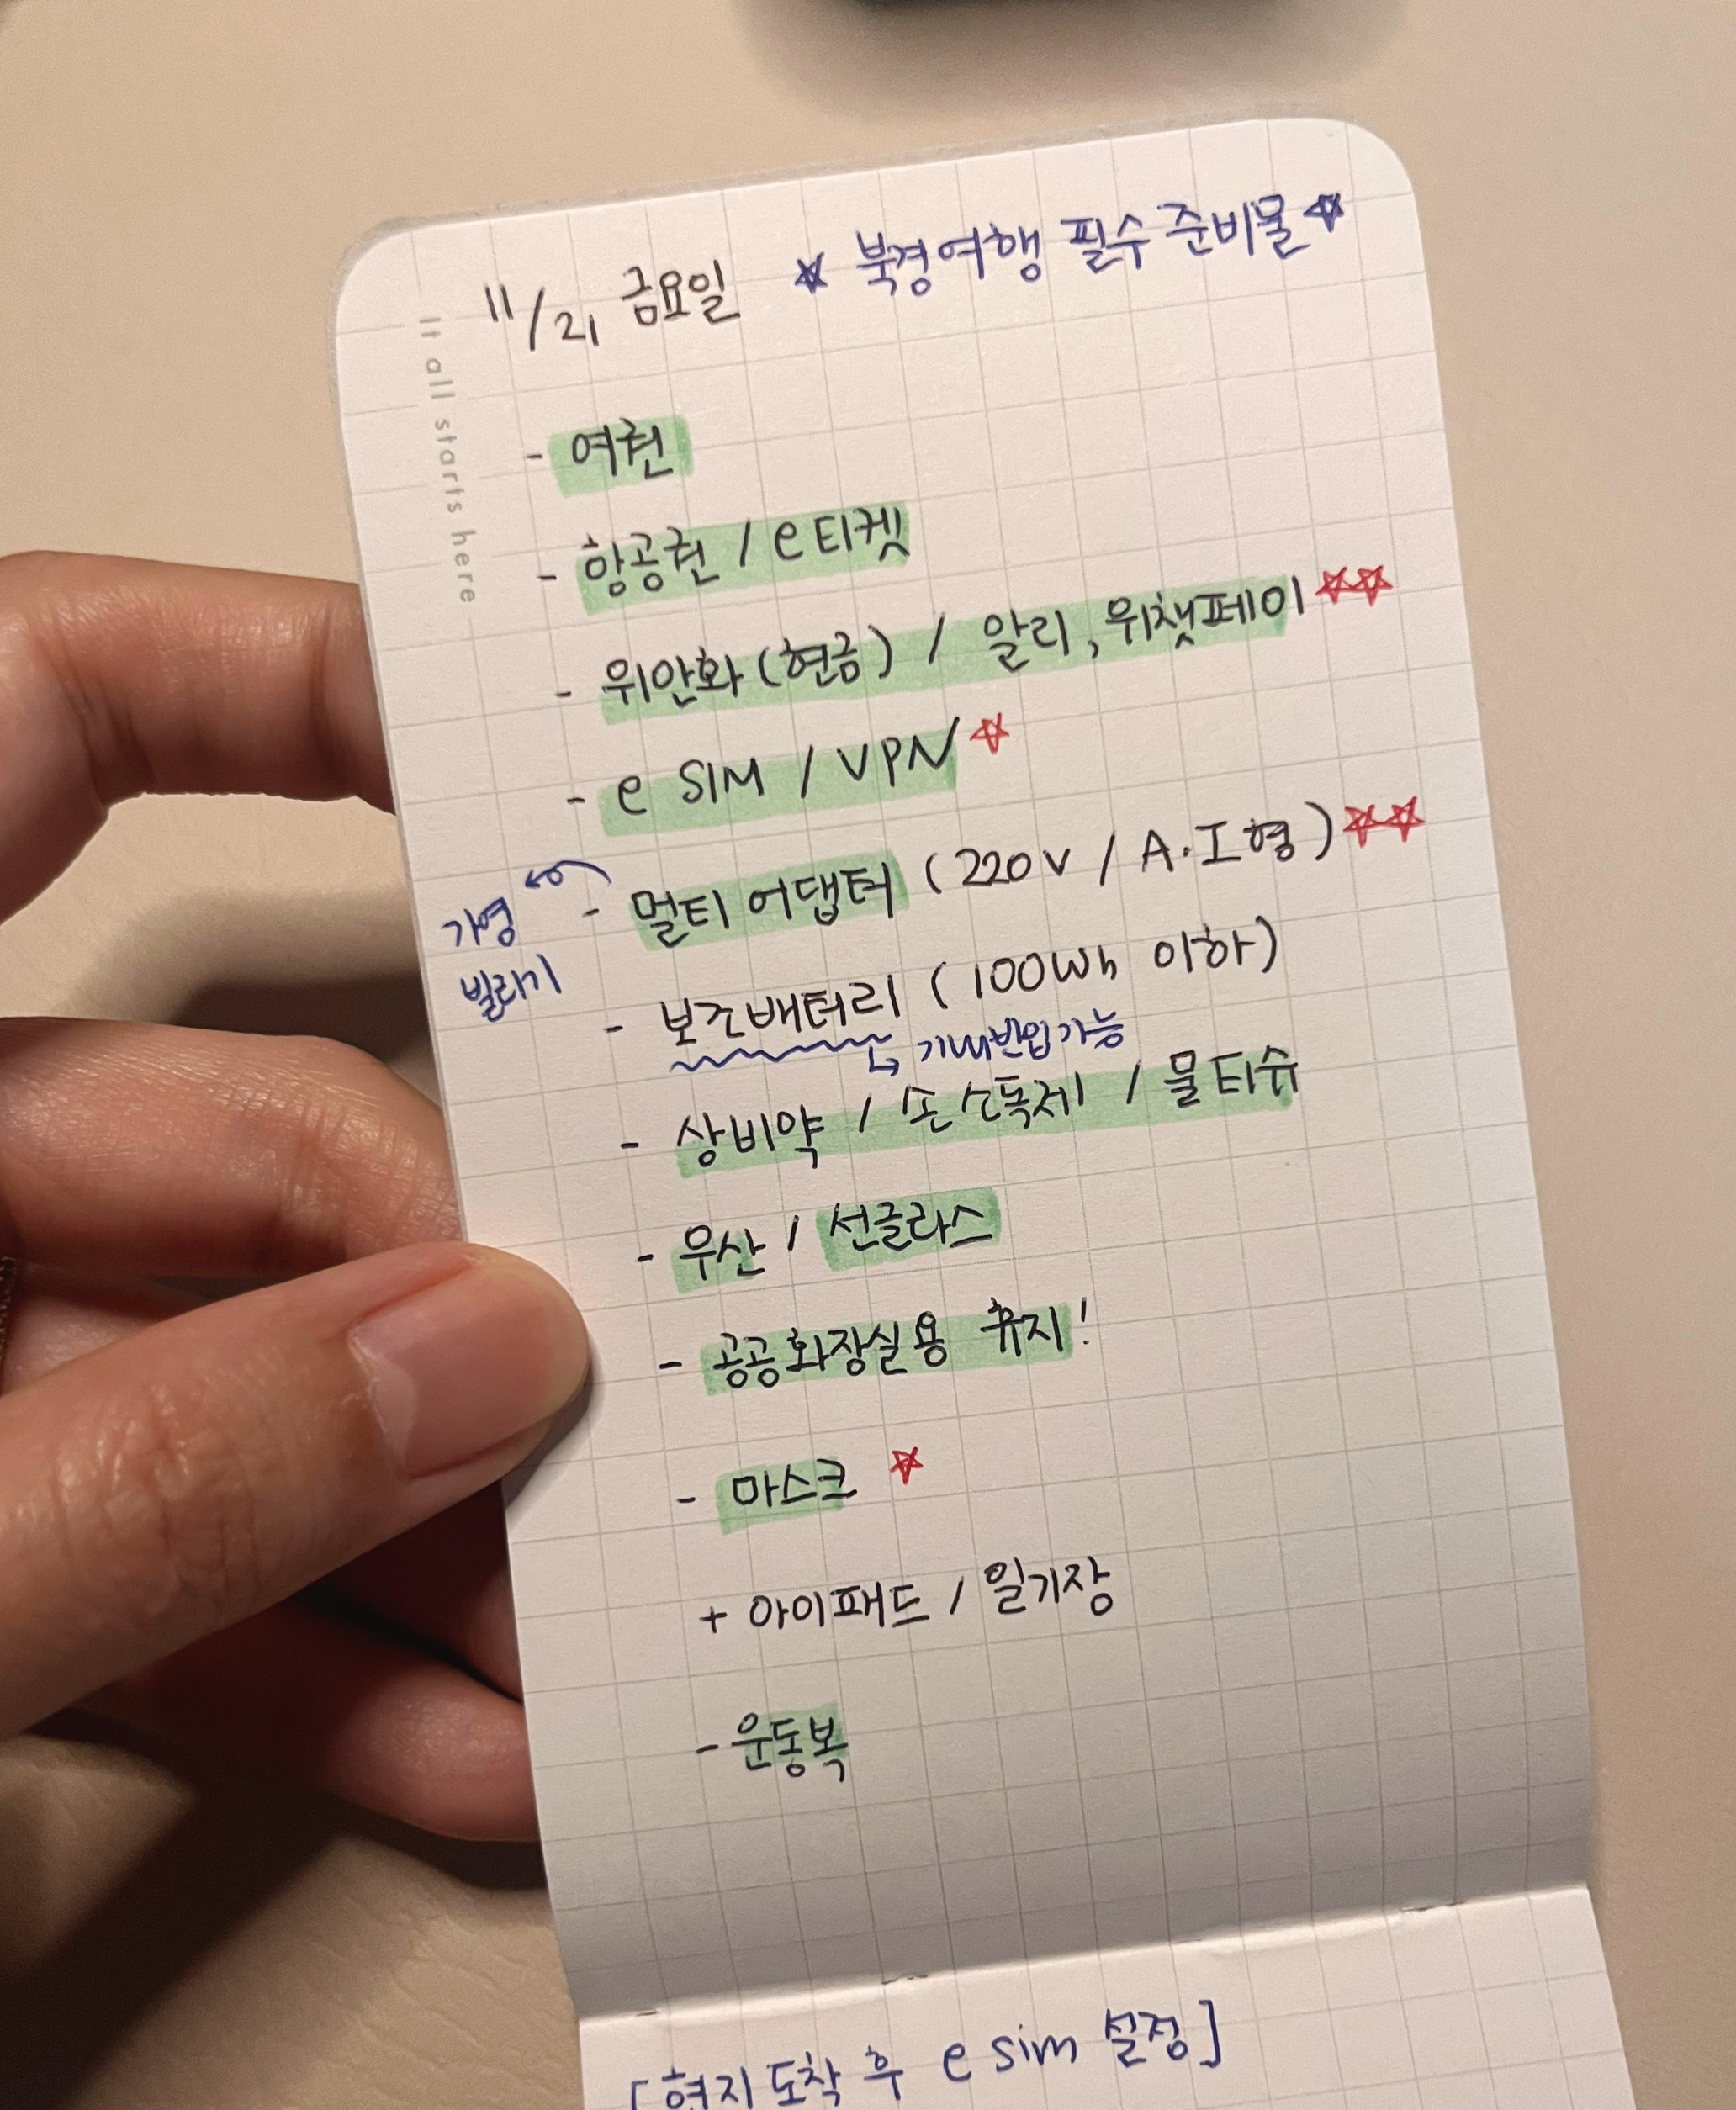 It all starts here
11/21 금요일 ☆ 북경여행 필수 준비물 ☆
- 여권
- 항공권 / e티켓
- 위안화(현금) / 알리, 위챗페이 ☆☆
- e SIM / VPN ☆
- 멀티 어댑터 (220V / A·I형) ☆☆
가영
빌리기
- 보조배터리 (100Wh 이하)
↳ 기내반입가능
- 상비약 / 손소독제 / 물티슈
- 우산 / 선글라스
- 공공화장실용 휴지!
- 마스크 ☆
+ 아이패드 / 일기장
- 운동복
[현지 도착 후 e sim 설정]